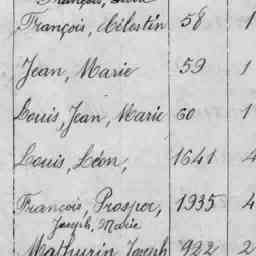 François, Célestin 58 1
Jean, Marie 59 1
Louis, Jean, Marie 60 1
Louis, Léon, 1641 4
François, Prosper, 1935 4
Joseph, Marie
Mathurin Joseph 922 2